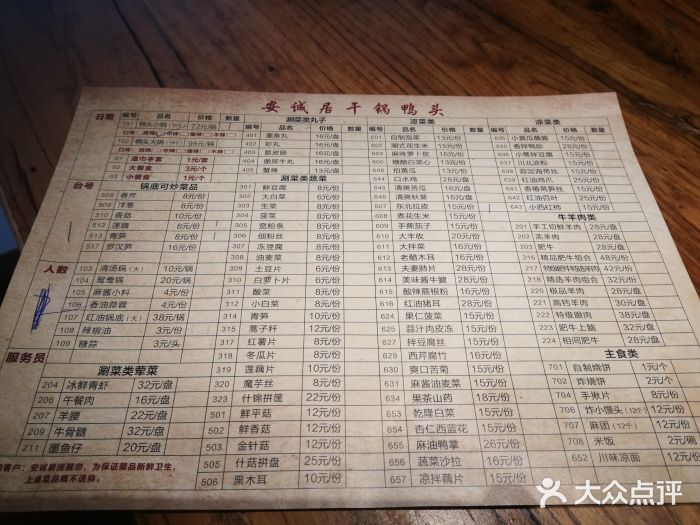 安诚居干锅鸭头
日期
编号 品名 价格 数量
101 鸭头小锅 72元/锅
102 鸭头大锅 98元/锅
01 湿巾手套 1元/套
02 大餐盒 3元/个
03 小餐盒 1元/个
台号
锅底可炒菜品
508 香芹 8元/份
509 洋葱 8元/份
510 香菇 10元/份
512 莲藕 8元/份
513 青笋 8元/份
517 罗汉笋 16元/份
人数
103 清汤锅(大) 10元/锅
104 鸳鸯锅 20元/锅
105 麻酱小料 4元/份
106 香油蒜蓉 4元/份
107 红油锅底(大) 38元/锅
108 辣椒油 3元/份
109 糖蒜 3元/头
服务员
涮菜类荤菜
204 冰鲜青虾 32元/盘
206 午餐肉 16元/盘
207 羊腰 22元/盘
209 牛骨髓 32元/盘
211 墨鱼仔 20元/盘
客户：安诚居提醒您，为保证菜品新鲜卫生，
上桌菜品概不退换。
涮菜类丸子
编号 品名 价格 数量
401 墨鱼丸 16元/盘
402 虾丸 16元/盘
403 脆皮肠 16元/盘
404 撒尿牛丸 16元/盘
405 蟹棒 12元/盘
涮菜类蔬菜
301 鲜豆腐 8元/份
302 大白菜 8元/份
303 生菜 8元/份
304 菠菜 8元/份
305 宽粉条 8元/份
306 细粉丝 8元/份
307 冻豆腐 8元/份
308 油麦菜 8元/份
309 土豆片 8元/份
310 白萝卜片 8元/份
311 酸菜 8元/份
312 小白菜 8元/份
314 青笋 8元/份
315 蒿子秆 12元/份
317 红薯片 8元/份
318 冬瓜片 8元/份
319 莲藕片 10元/份
320 魔芋丝 8元/份
323 什锦拼筐 22元/份
501 鲜平菇 12元/份
502 鲜香菇 12元/份
503 金针菇 12元/份
505 什菇拼盘 25元/份
506 黑木耳 10元/份
凉菜类
编号 品名 价格 数量
601 自制泡菜 13元/份
602 潮式花生米 15元/份
603 麻辣萝卜皮 16元/份
605 糖醋白菜心 13元/份
606 拍黄瓜 13元/份
644 口水鸡 28元/份
645 清爽苦瓜 16元/份
646 清爽秋葵 16元/份
607 东北拉皮 15元/份
608 煮花生米 15元/份
609 手撕茄子 15元/份
610 大丰收 20元/份
611 大拌菜 16元/份
612 老醋木耳 16元/份
613 夫妻肺片 32元/份
614 美味酱牛腱 28元/份
615 酸辣蕨根粉 16元/份
616 红油猪耳 28元/份
624 果仁菠菜 15元/份
625 蒜汁肉皮冻 15元/份
627 拌豆腐丝 15元/份
629 西芹腐竹 16元/份
630 爽口苦菊 15元/份
631 麻酱油麦菜 15元/份
634 果茶山药 18元/份
653 乾隆白菜 15元/份
654 杏仁西蓝花 15元/份
655 麻油鸭掌 26元/份
656 蔬菜沙拉 16元/份
657 凉拌藕片 15元/份
凉菜类
编号 品名 价格 数量
635 小黄瓜蘸酱 15元/份
646 香拌鸭胗 28元/份
636 小葱拌豆腐 15元/份
637 川北凉粉 15元/份
638 蒜泥海带丝 15元/份
639 红油鸡爪 25元/份
641 香糟莴笋丝 15元/份
642 红油百叶 28元/份
643 小西红柿 15元/份
牛羊肉类
201 手工切鲜羊肉 28元/盘
202 羔羊肉 28元/盘
203 肥牛 28元/盘
220 极品羔羊 28元/盘
221 高钙羊肉 30元/盘
222 特级眼肉 38元/盘
223 肥牛上脑 32元/盘
224 相间肥牛 28元/盘
主食类
701 自制烧饼 1元/个
702 炸烧饼 2元/个
704 手揪片 8元/份
706 炸小馒头(12个) 12元/份
707 麻团(12个) 12元/份
708 米饭 2元/碗
652 川味凉面 12元/份
大众点评